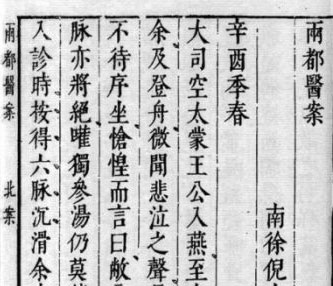 兩都醫案
南徐倪
辛酉季春
大司空太蒙王公入燕至
余及登舟微聞悲泣之聲
不待序坐愴惶而言曰敝
脉亦將絕嚾獨參湯仍莫
入診時按得六脉沉滑余
兩都醫案 北案